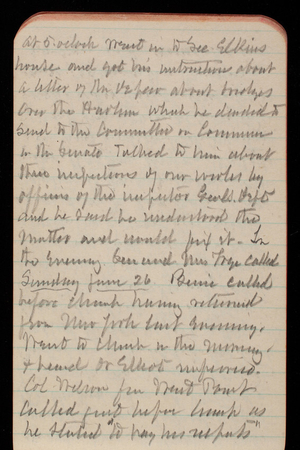 At 5 oclock went in to Sec Elkins
house and got his instructions about
a letter of the Dept about bridges
over the Harlem which he decided to
send to the Committee on Commerce
in the Senate Talked to him about
this inspections of our works by
officers of the inspector Genls. Dept
and he said he understood the
matter and would fix it. In
the evening Gen and Mrs called
Sunday June 26 called
before church having returned
from New York last evening.
Went to church in the morning.
& heard Dr Elliott
Col Wilson from West Point
called just before church as
he stated "to pay his respects"